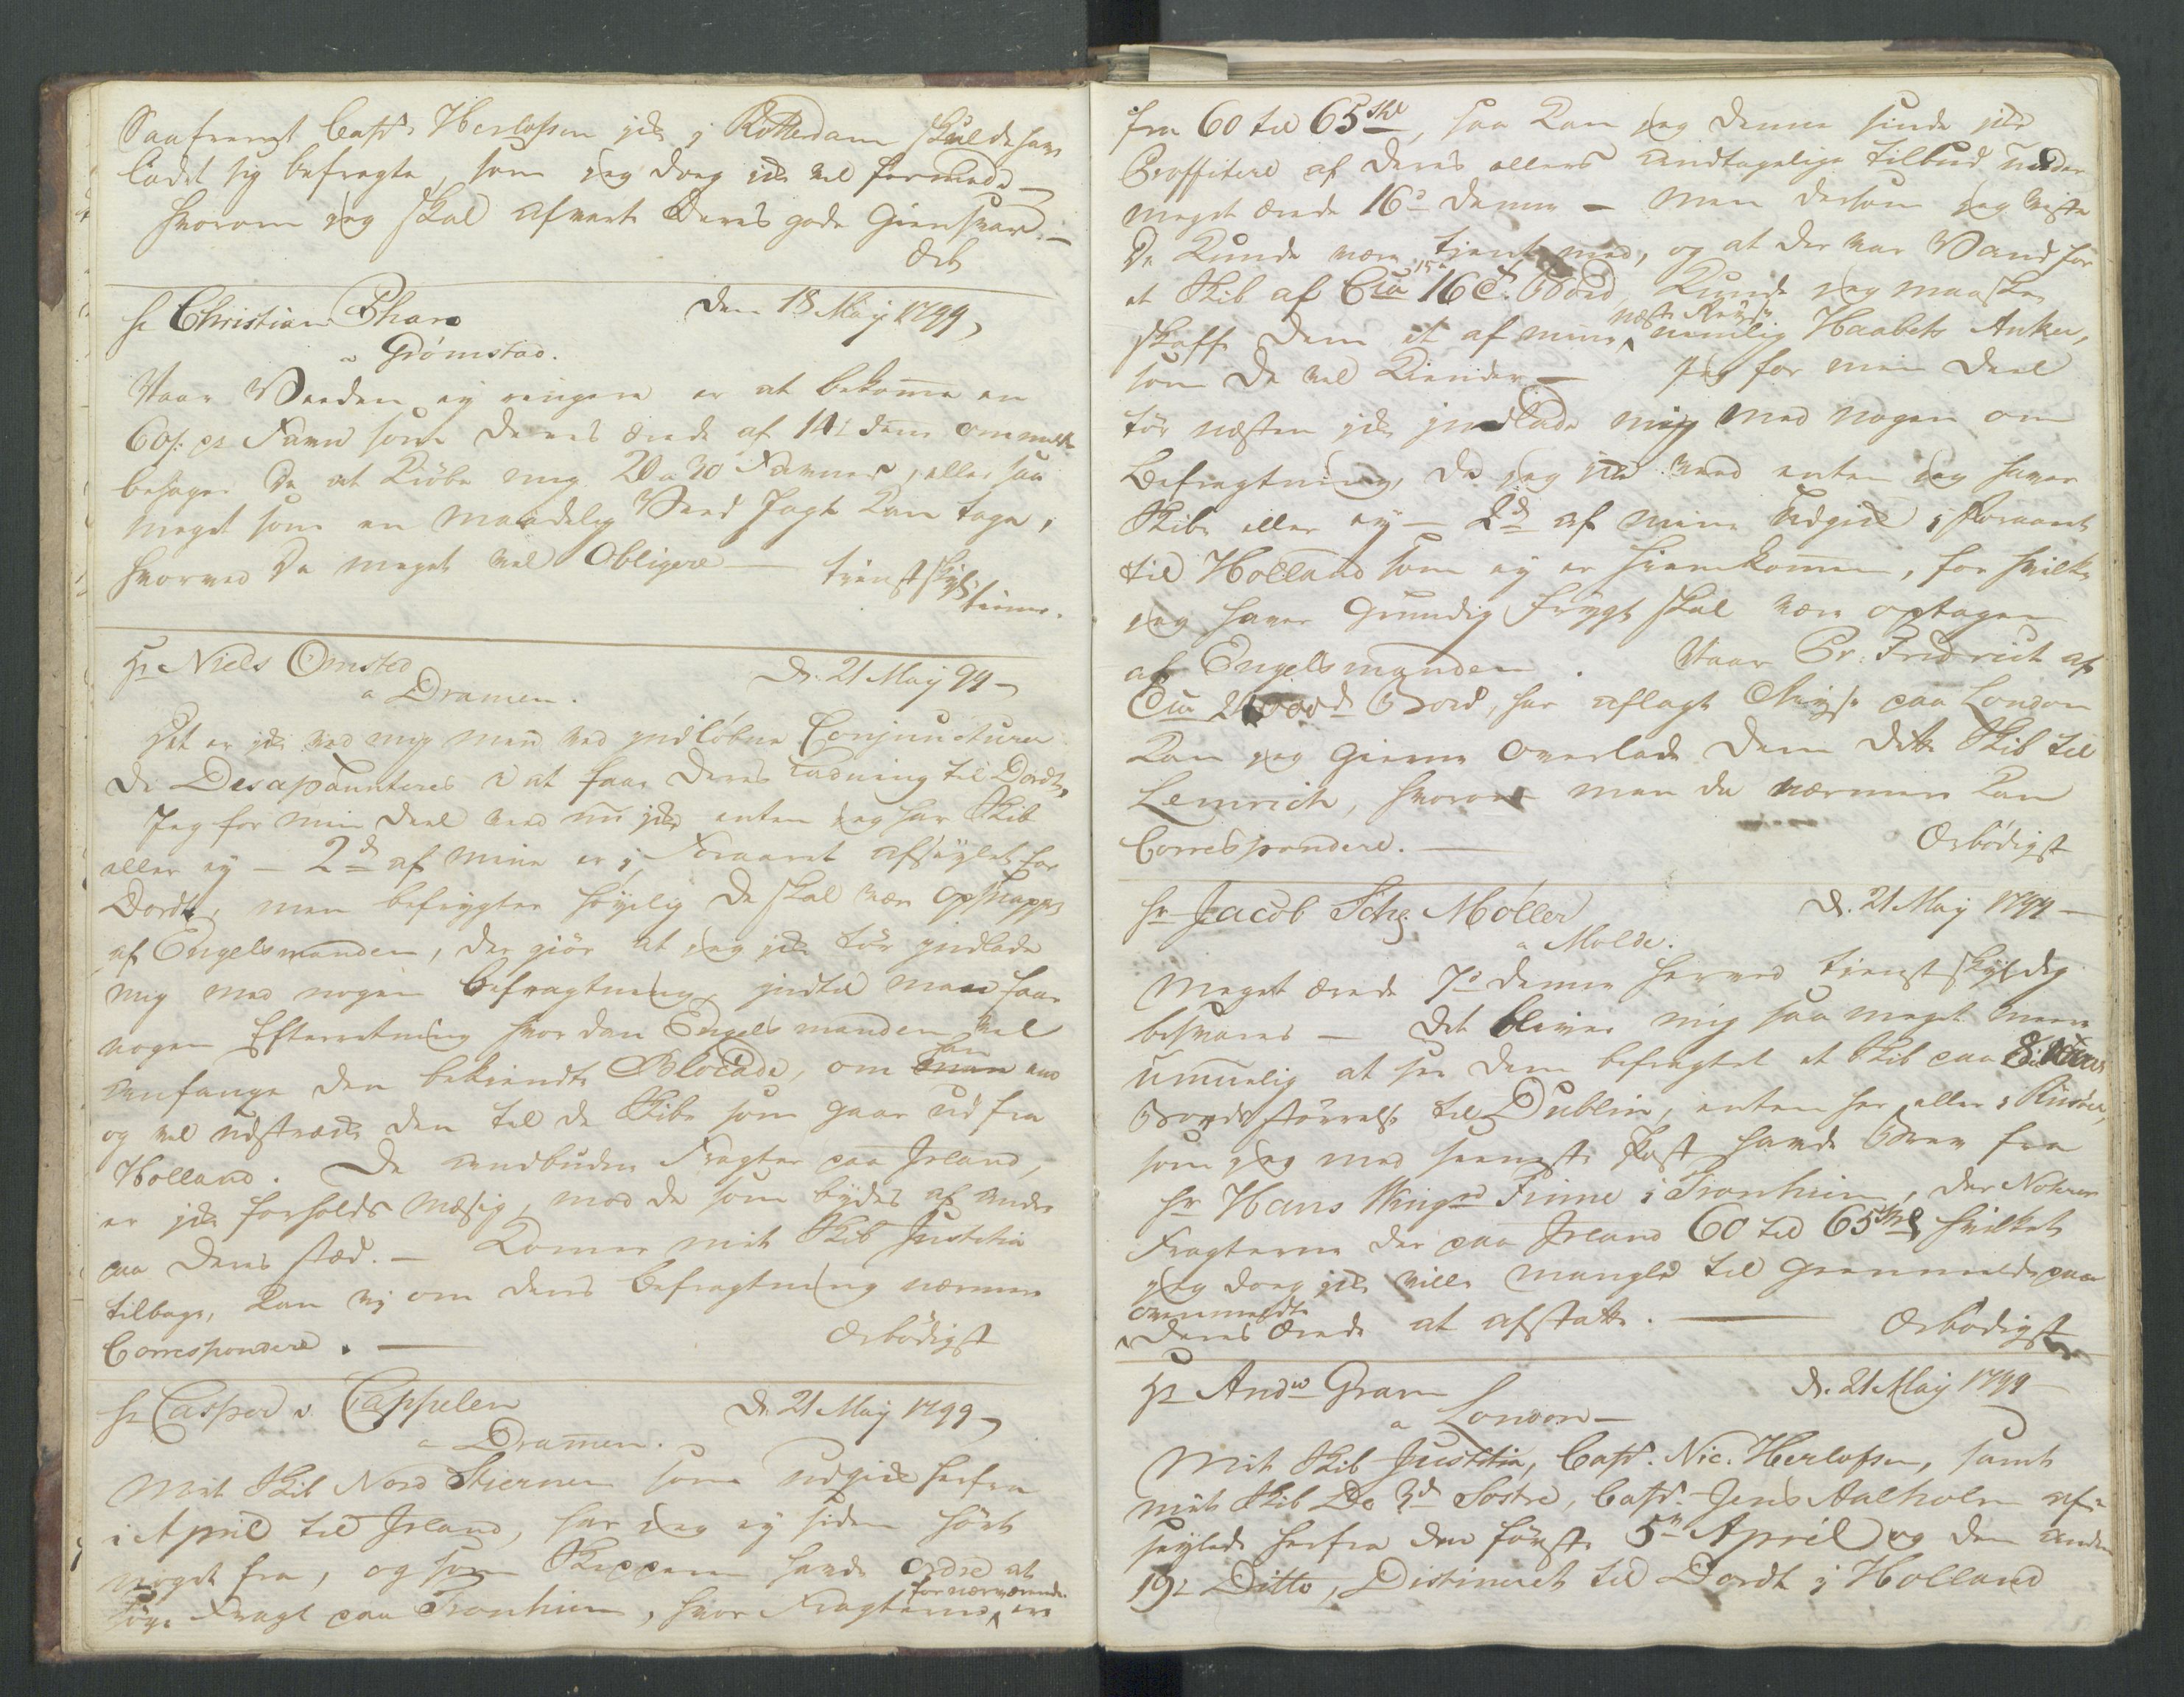 Saafremt Capt: Herlofsen ikke i Rotterdam skulde have
ladet sig befragte, som jeg dog ikke vel formode –
hvorom jeg skal afvente Deres gode Giensvar. –
Ærb
Hr Christian Pharo den 18 Maij 1799,
a Grømstad.
Naar Veeden ej ringere er at bekomme en
60s. pr Favn som Deres ærede af 14d dennes ommelder
behager De at kiøbe mig 20 a 30 Favner, eller saa
meget som en maadelig Veed Jagt kan tage,
hvorved De meget vel Obligere – tienstskyldig
tiener.
Hr Niels Omsted D. 21 Maij 99 –
a Dramen.
Det er ikke ved mig men ved indløbne Conjuncturer
De Desapaunteres i at faae Deres Ladning til Dordt,
Jeg for min Deel veed nu ikke enten jeg har Skib
eller ej – 2de af mine er i Foraaret afseylet for
Dordt, men befrygter høyelig De skal være opsnappet
af Engelsmanden, der giør at jeg ikke tør indlade
mig med nogen Befragtning, indtil man faar
nogen Efterretning hvordan Engelsmanden vil
anfange den bekiendte Blocade, om han end
og vil udstrække den til de Skibe som gaar ud fra
Holland. De anbudne Fragter paa Irland,
er ikke forholdsmæsig, mod de som bydes af andre
paa deres sted. – Kommer mit Skib Justitia
tilbage, kan vi om dens Befragtning nærmere
Correspondere. – Ærbødigst
Hr Casper v. Cappelen D. 21 Maij 1799,
a Dramen.
Mit Skib Nord Stiernen som udgik herfra
i April til Irland, har jeg ej siden hørt
noget fra, og som Skipperen havde ordre at
søge Fragt paa Tronhiem, hvor Fragterne fornærværende ere
fra 60 til 65 skl, saa kan jeg denne sinde ikke
Proffitere af deres ellers andtagelige tilbud under
meget ærede 16de dennes – Men dersom jeg viste
De kunde være tient med, og at der var Vand for
et Skib af Cua 15 a 16 C. Bord, kunde jeg maaskee
skaffe Dem et af mine næste Reyse nemlig Haabets Anker,
som De vel kiender – Jeg for min Deel
tør næsten ikke indlade mig med nogen om
Befragtning, da jeg ikke veed enten jeg haver
Skibe eller ej – 2de af mine udgik i Foraaret
til Holland som ej er hiemkommen, for hvilke
jeg haver Grundig frygt skal være optagen
af Engelsmanden. Naar Pr. Fridrich af
Cua Bord, har aflagt Reyse paa London
kan jeg gierne overlade Dem dette Skib til
Lemrich, hvorom man da nærmere kan
Correspondere. – Ærbødigst
Hr Jacob Schz Møller D. 21 Maij 1799 –
a Molde.
Meget ærede 7de dennes hermed tienstskyldig
besvares – Det bliver mig saa meget mere
umuelig at faae Dem befragtet et Skib paa
Bords størrelse til Dublin, enten her eller i Riisøer,
som jeg med seeneste Post havde Brev fra
Hr Hans Wingrd Finne i Tronhiem, der Noterer
Fragterne der paa Irland 60 til 65 skl hvilket
jeg dog ikke ville mangle til Giennemelde paa
ovenmeldte Deres ærede at afstatte. – Ærbødigst
Hr Andw Gram D. 21 Maij 1799
a London –
Mit Skib Justitia, Capt. Nic. Herlofsen, samt
mit Skib De 3de Søstre, Capt. Jens Aalholm af-
seylede herfra den første 5te April og den anden
19de Ditto, Distineret til Dordt i Holland